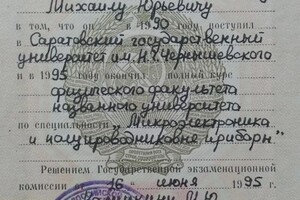 Михаилу Юрьевичу
в том, что он в 1990 году поступил
в Саратовский государственный
университет им. Н.Г. Чернышевского
и в 1995 окончил полный курс
физического факультета
названного университета
по специальности „Микроэлектроника
и полупроводниковые приборы"
Решением Государственной экзаменационной
комиссии от 16 июня 1995 г.